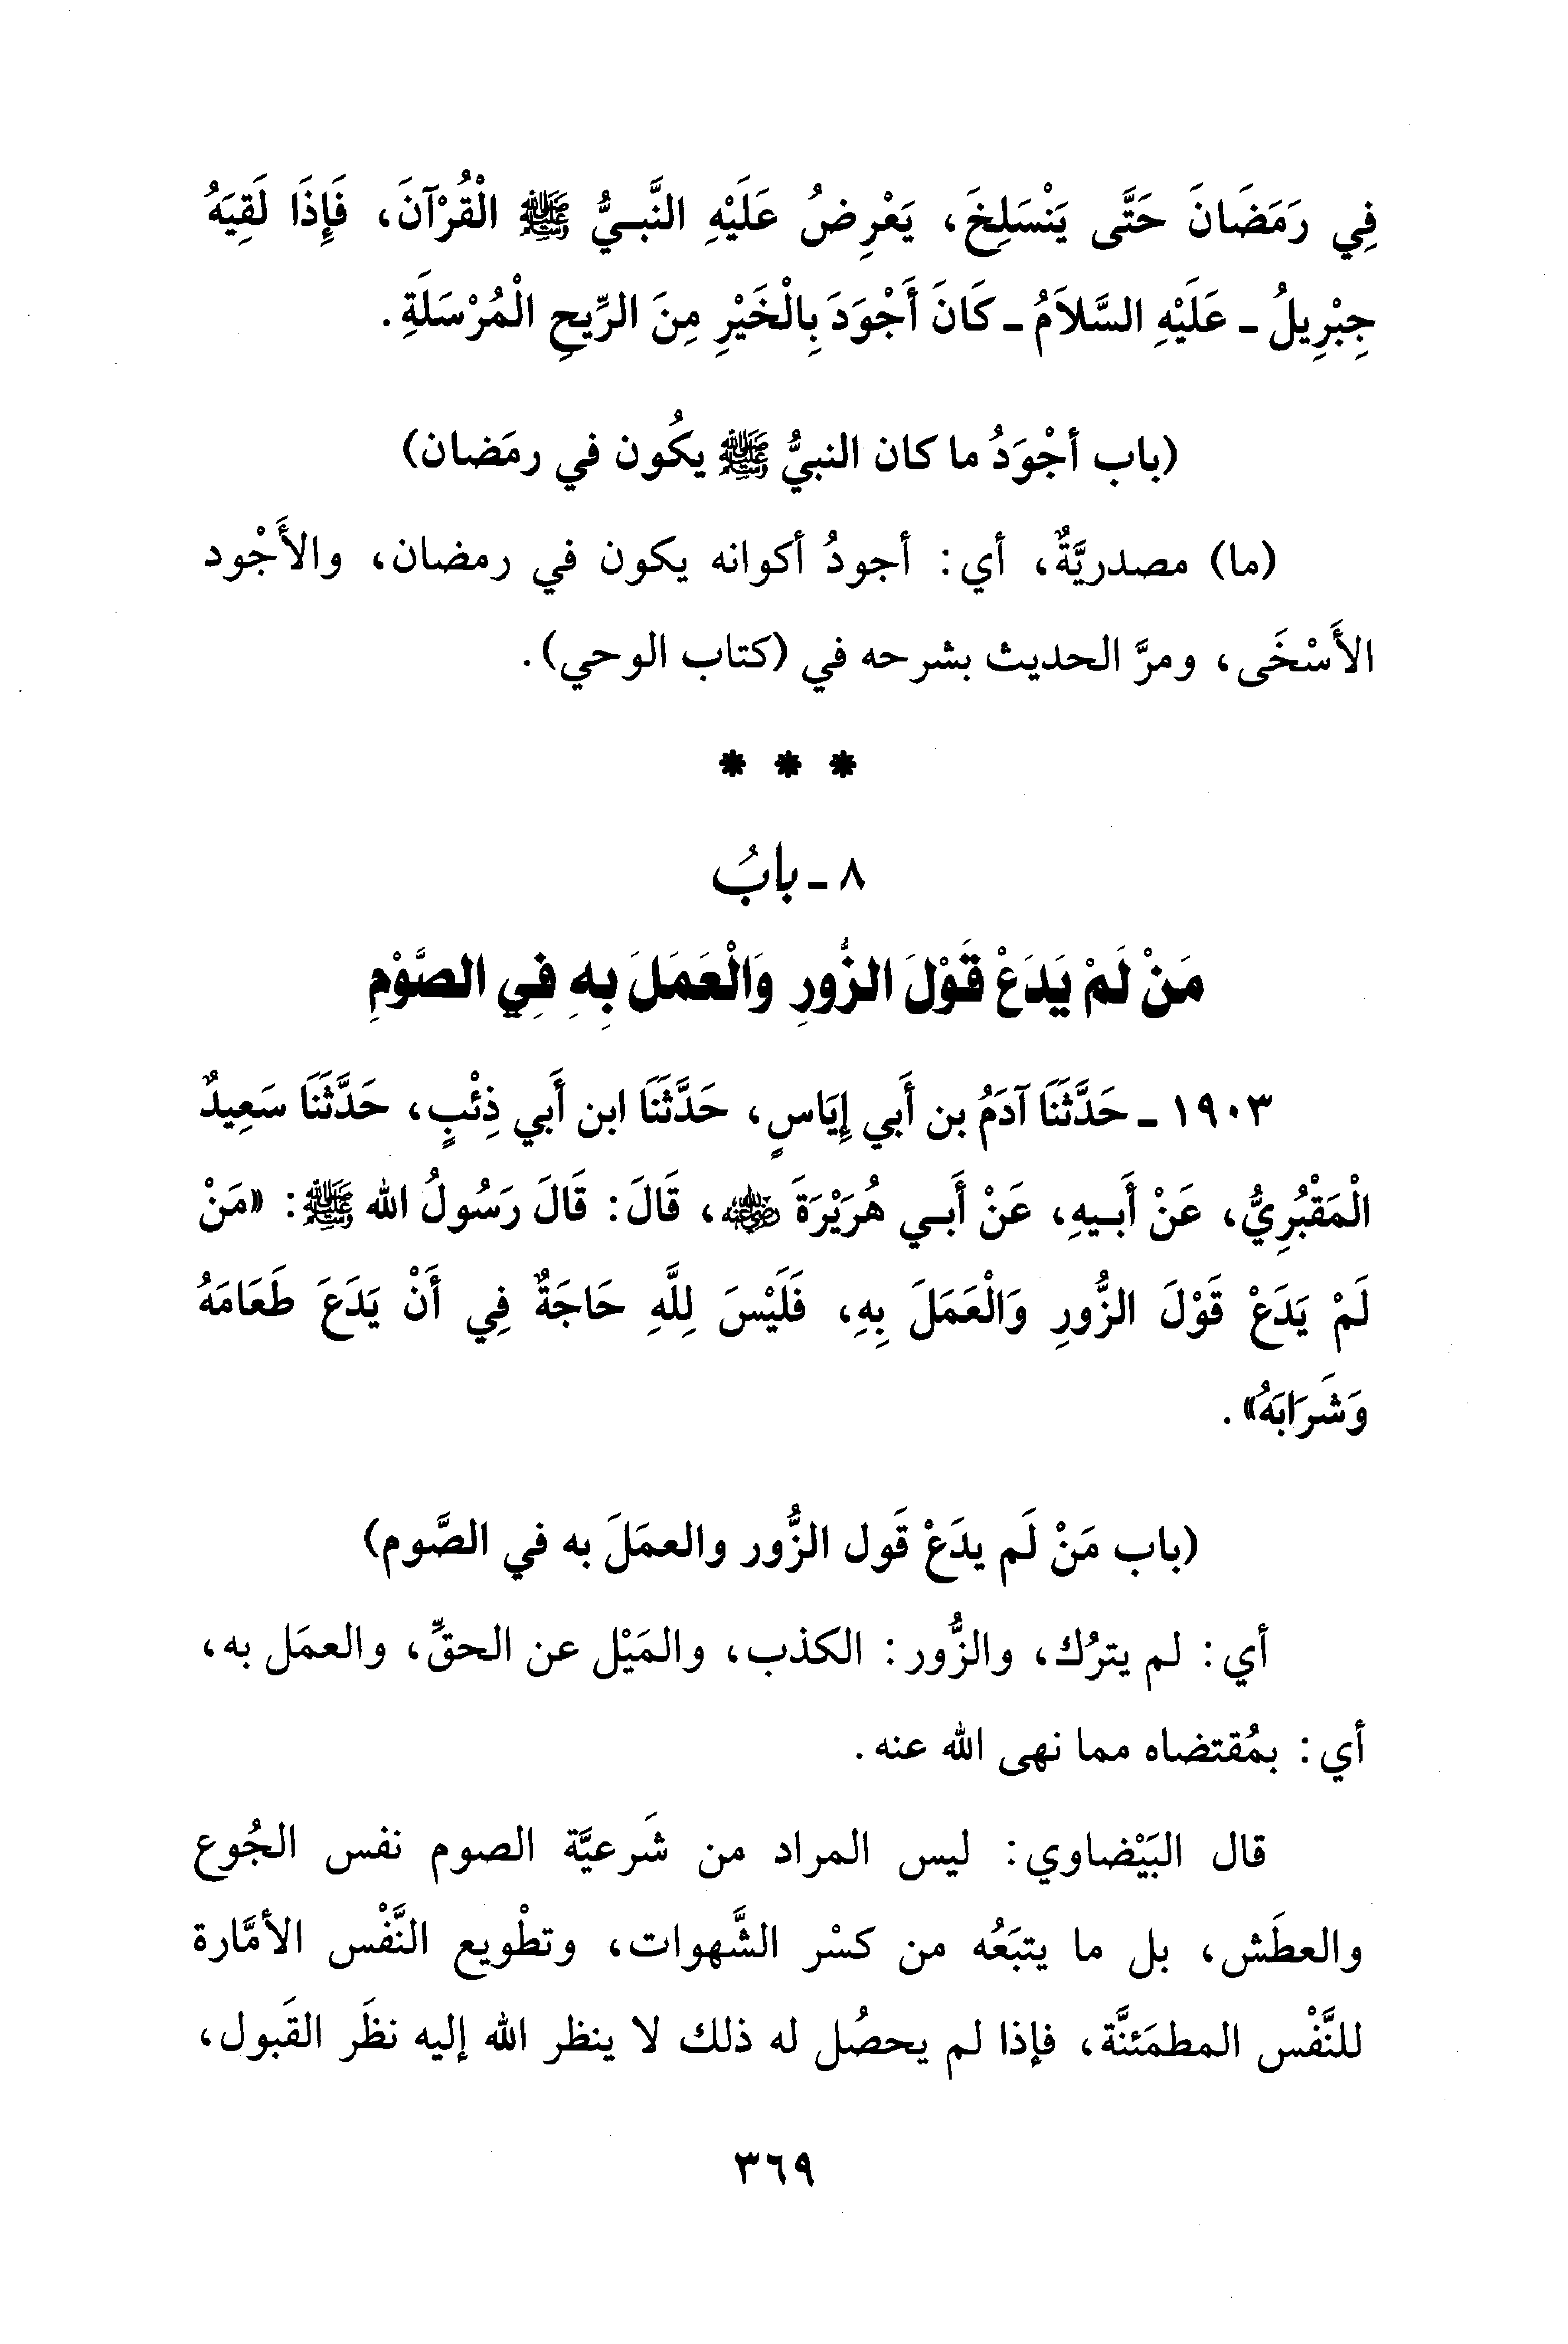 فِي رَمَضَانَ حَتَّى يَنْسَلِخَ، يَعْرِضُ عَلَيْهِ النَّبِيُّ ﷺ الْقُرْآنَ، فَإِذَا لَقِيَهُ
جِبْرِيلُ - عَلَيْهِ السَّلاَمُ - كَانَ أَجْوَدَ بِالْخَيْرِ مِنَ الرِّيحِ الْمُرْسَلَةِ.
(باب أجْوَدُ ما كان النبيُّ ﷺ يكُون في رمَضان)
(ما) مصدريَّةٌ، أي: أجودُ أكوانه يكون في رمضان، والأَجْود
الأَسْخَى، ومرَّ الحديث بشرحه في (كتاب الوحي).
* * *
٨ - بابُ
مَنْ لَمْ يَدَعْ قَوْلَ الزُّورِ وَالْعَمَلَ بِهِ فِي الصَّوْمِ
١٩٠٣ - حَدَّثَنَا آدَمُ بن أَبي إِيَاسٍ، حَدَّثَنَا ابن أَبي ذِئْبٍ، حَدَّثَنَا سَعِيدٌ
الْمَقْبُرِيُّ، عَنْ أَبيهِ، عَنْ أَبي هُرَيْرَةَ ﵁، قَالَ: قَالَ رَسُولُ الله ﷺ: «مَنْ
لَمْ يَدَعْ قَوْلَ الزُّورِ وَالْعَمَلَ بِهِ، فَلَيْسَ لِلَّهِ حَاجَةٌ فِي أَنْ يَدَعَ طَعَامَهُ
وَشَرَابَهُ».
(باب مَنْ لَم يدَعْ قَول الزُّور والعمَلَ به في الصَّوم)
أي: لم يترُك، والزُّور: الكذب، والمَيْل عن الحقِّ، والعمَل به،
أي: بمُقتضاه مما نهى الله عنه.
قال البَيْضاوي: ليس المراد من شَرعيَّة الصوم نفس الجُوع
والعطَش، بل ما يتبَعُه من كسْر الشَّهوات، وتطْويع النَّفْس الأمَّارة
للنَّفْس المطمَئنَّة، فإذا لم يحصُل له ذلك لا ينظر الله إليه نظَر القَبول،
٣٦٩